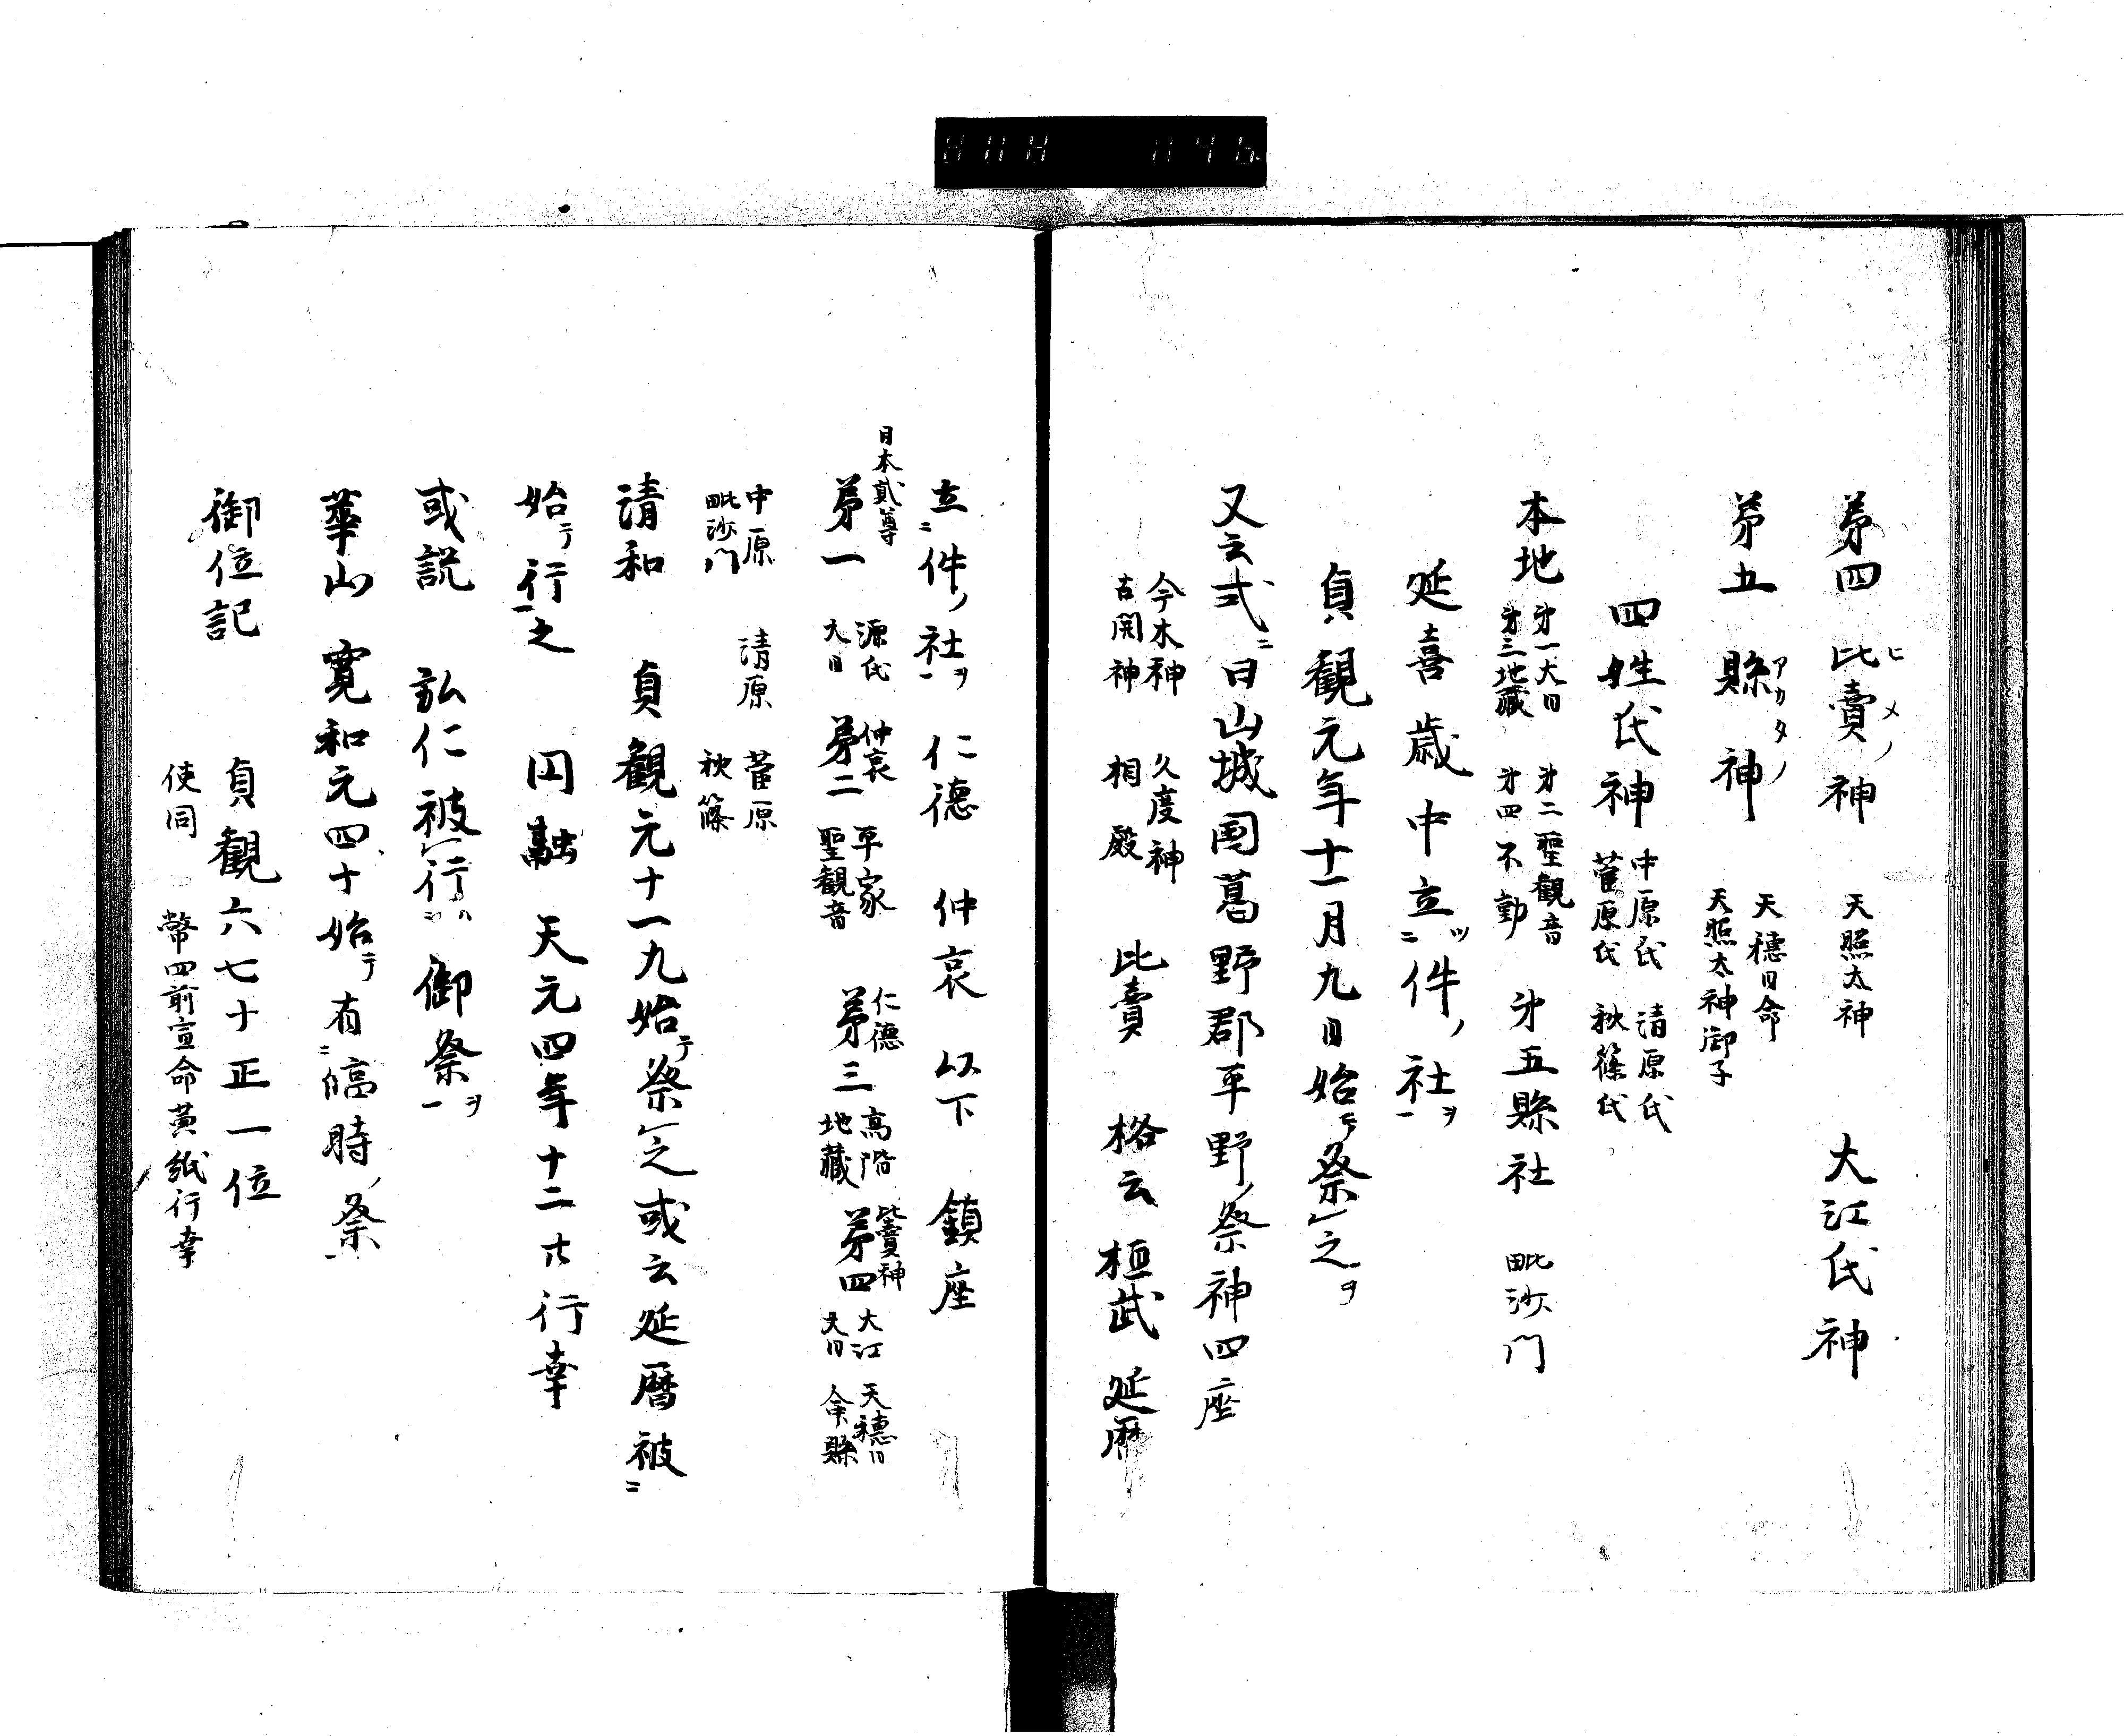 第四比賣神 天照太神 大江氏神
ヒメノ
第五縣神 天穂日命
天照太神御子
アカタノ
四姓氏神 中原氏 清原氏
菅原氏 秋篠氏
本地 第一大日 第二聖観音
第三地藏 第四不動
第五縣社 毗沙門
延喜歳中立ツニ件ノ社ヲ一
貞観元年十一月九日始テ祭之ヲ
又云式ニ曰山城國葛野郡平野祭神四座
今木神 久度神
古開神 相殿 比賣 格云桓武延暦
立ニ件ノ社ヲ一 仁德 仲哀 以下 鎮座
日本貳尊 仲哀 仁德 比賣神
第一 源氏
大日 第二 平家
聖観音 第三 高階
地藏 第四 大江
大日 天穂日
縣
中原 清原 菅原
毗沙門 秋篠
清和 貞観元十一九始テ祭之或云延暦被ニ
始テ行一之 円融 天元四年十二 行幸
或説 弘仁被行ハ御祭ヲ一
華山 寛和元四十始テ有ニ臨時ノ祭一
御位記 貞観六七十正一位
使同 幣四前宣命黄紙行幸